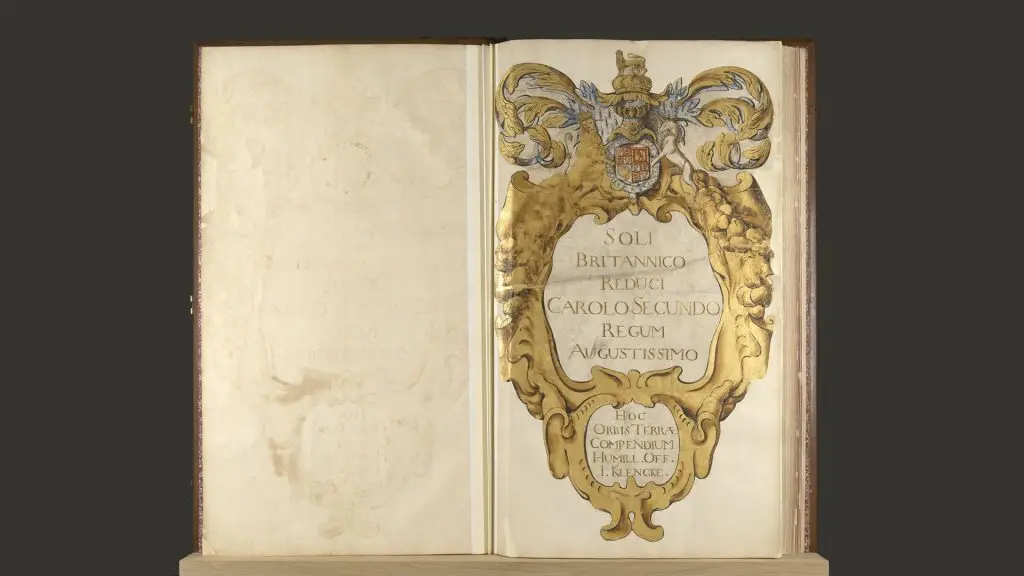 SOLI
BRITANNICO
REDUCI
CAROLO SECUNDO
REGUM
AUGUSTISSIMO
HOC
ORBIS TERRÆ
COMPENDIUM
HUMILL. OFF.
I. KLENCKE.